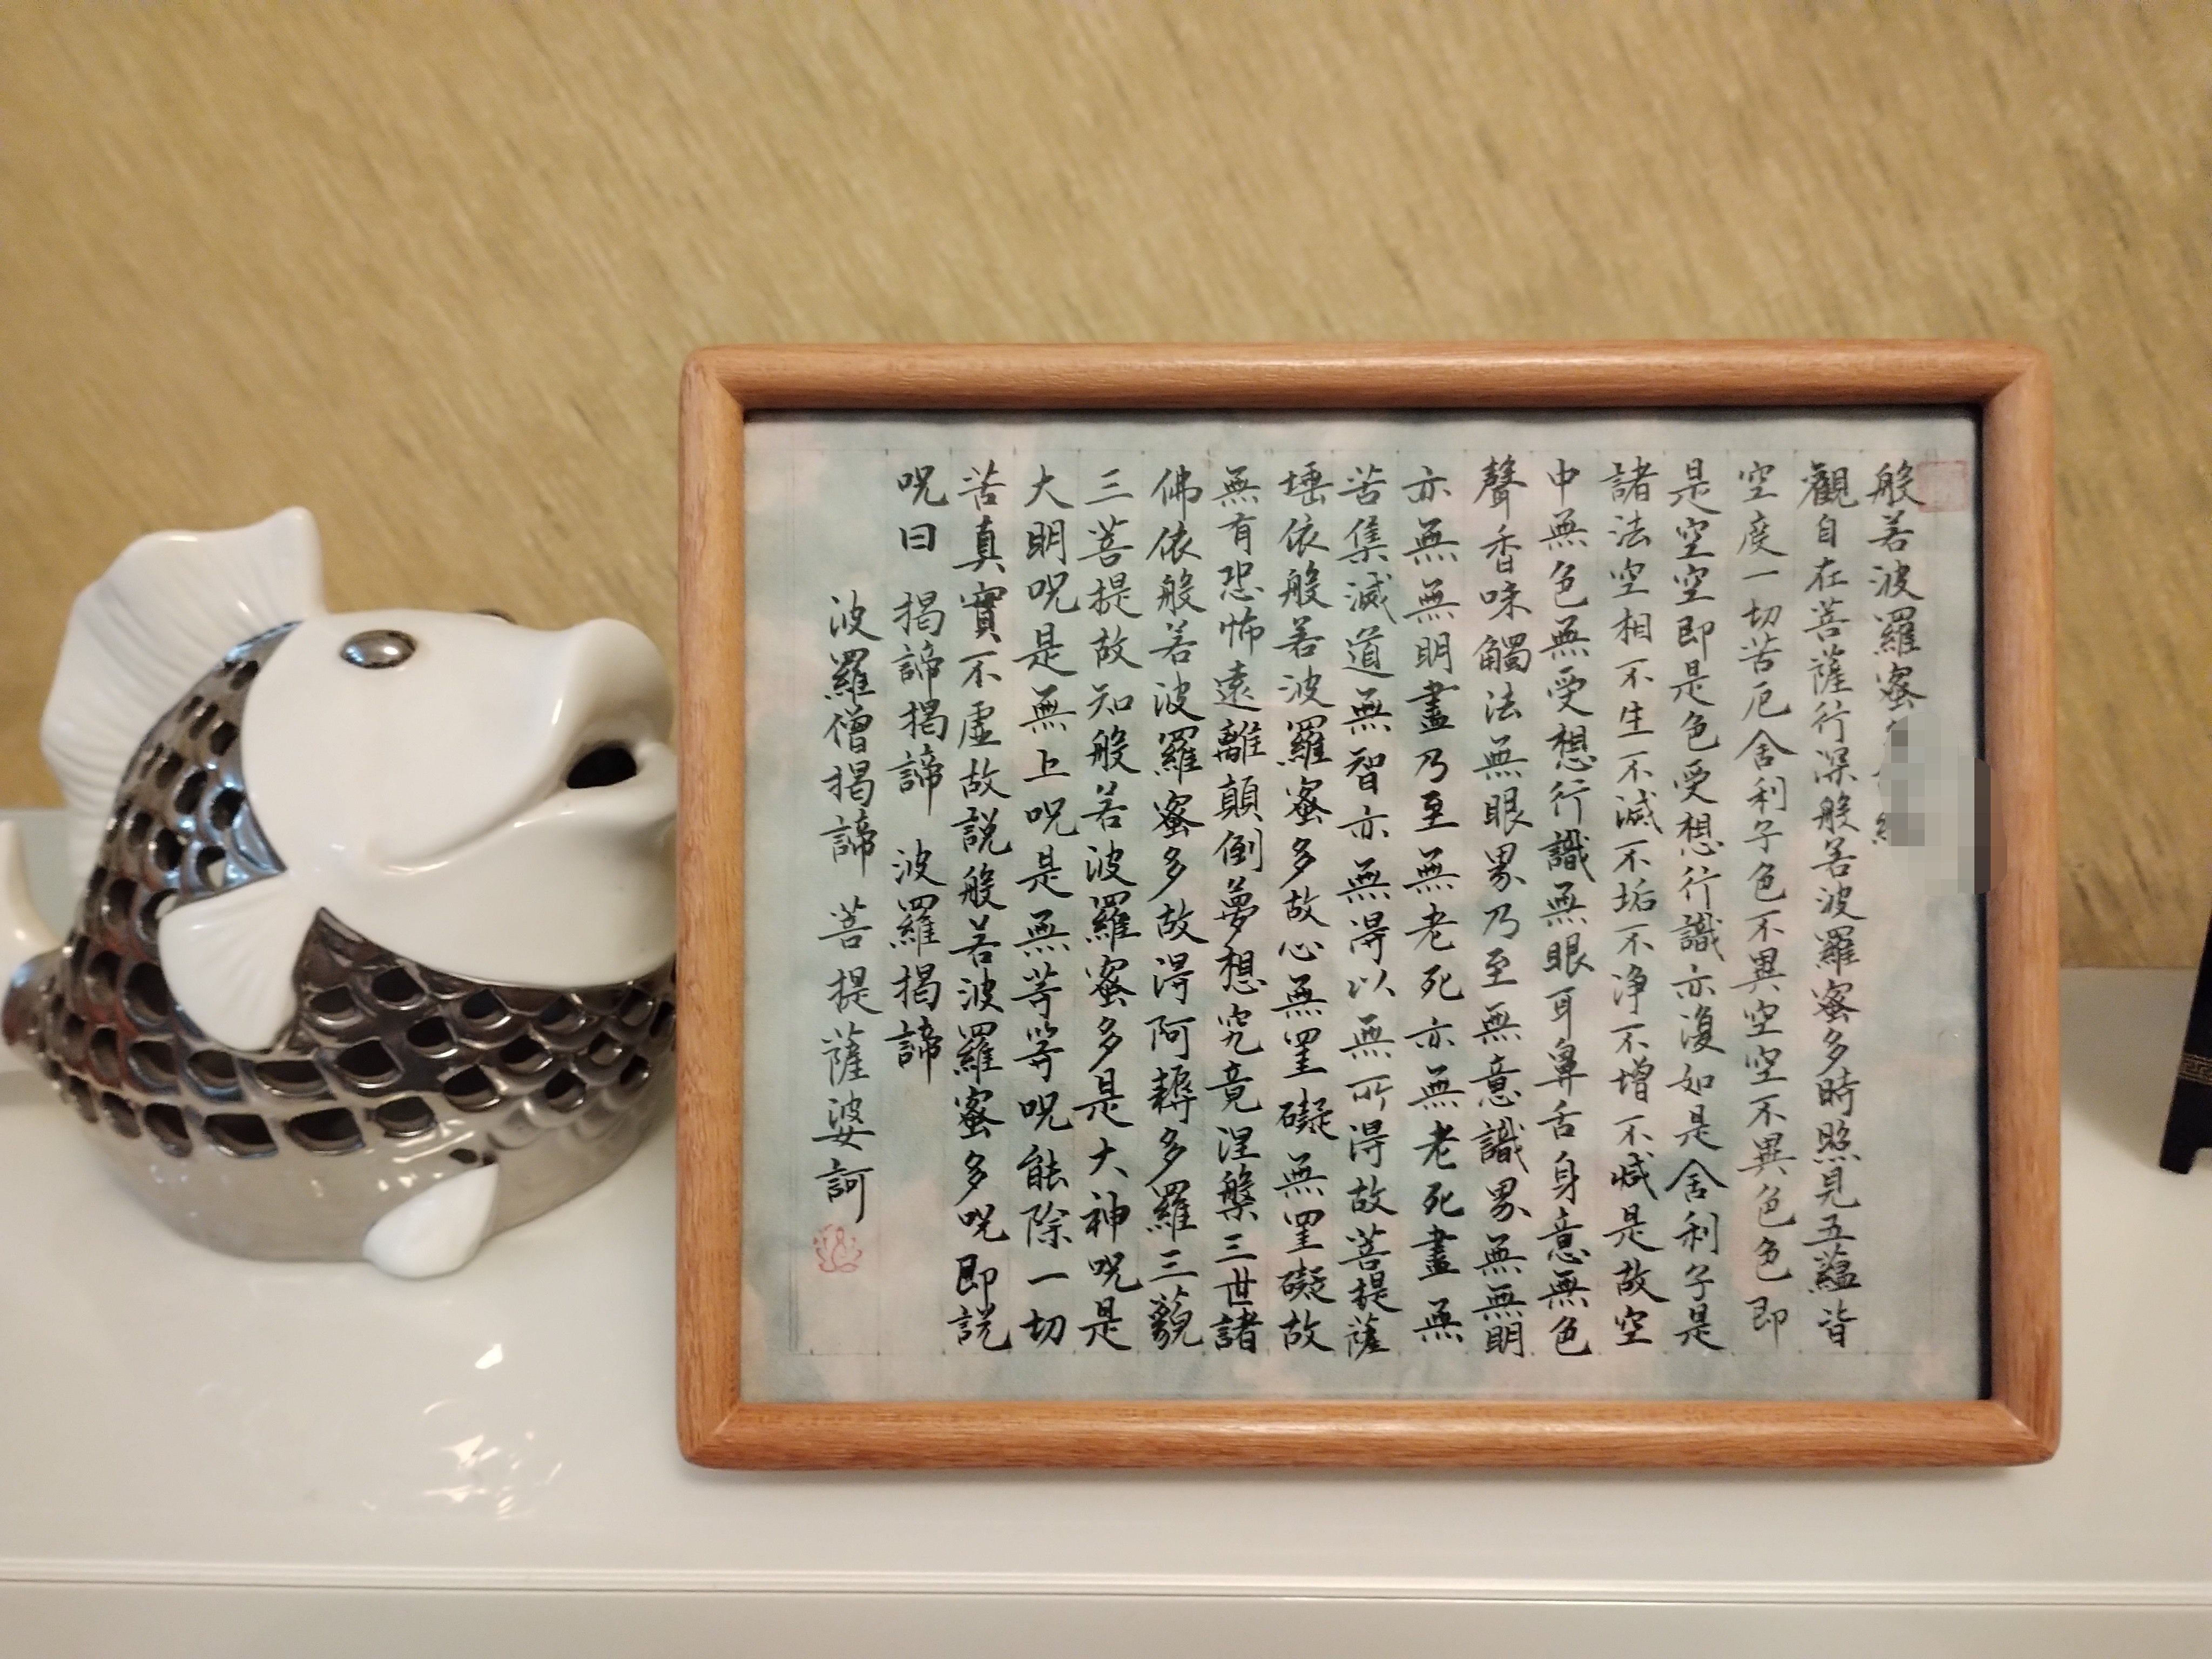 般若波羅蜜
觀自在菩薩行深般若波羅蜜多時照見五蘊皆
空度一切苦厄舍利子色不異空空不異色色即
是空空即是色受想行識亦復如是舍利子是
諸法空相不生不滅不垢不净不增不減是故空
中無色無受想行識無眼耳鼻舌身意無色
聲香味觸法無眼界乃至無意識界無無明
亦無無明盡乃至無老死亦無老死盡無
苦集滅道無智亦無得以無所得故菩提薩
埵依般若波羅蜜多故心無罣礙無罣礙故
無有恐怖遠離顛倒夢想究竟涅槃三世諸
佛依般若波羅蜜多故得阿耨多羅三藐
三菩提故知般若波羅蜜多是大神呪是
大明呪是無上呪是無等等呪能除一切
苦真實不虛故説般若波羅蜜多呪即説
呪曰 揭諦揭諦 波羅揭諦
波羅僧揭諦 菩提薩婆訶